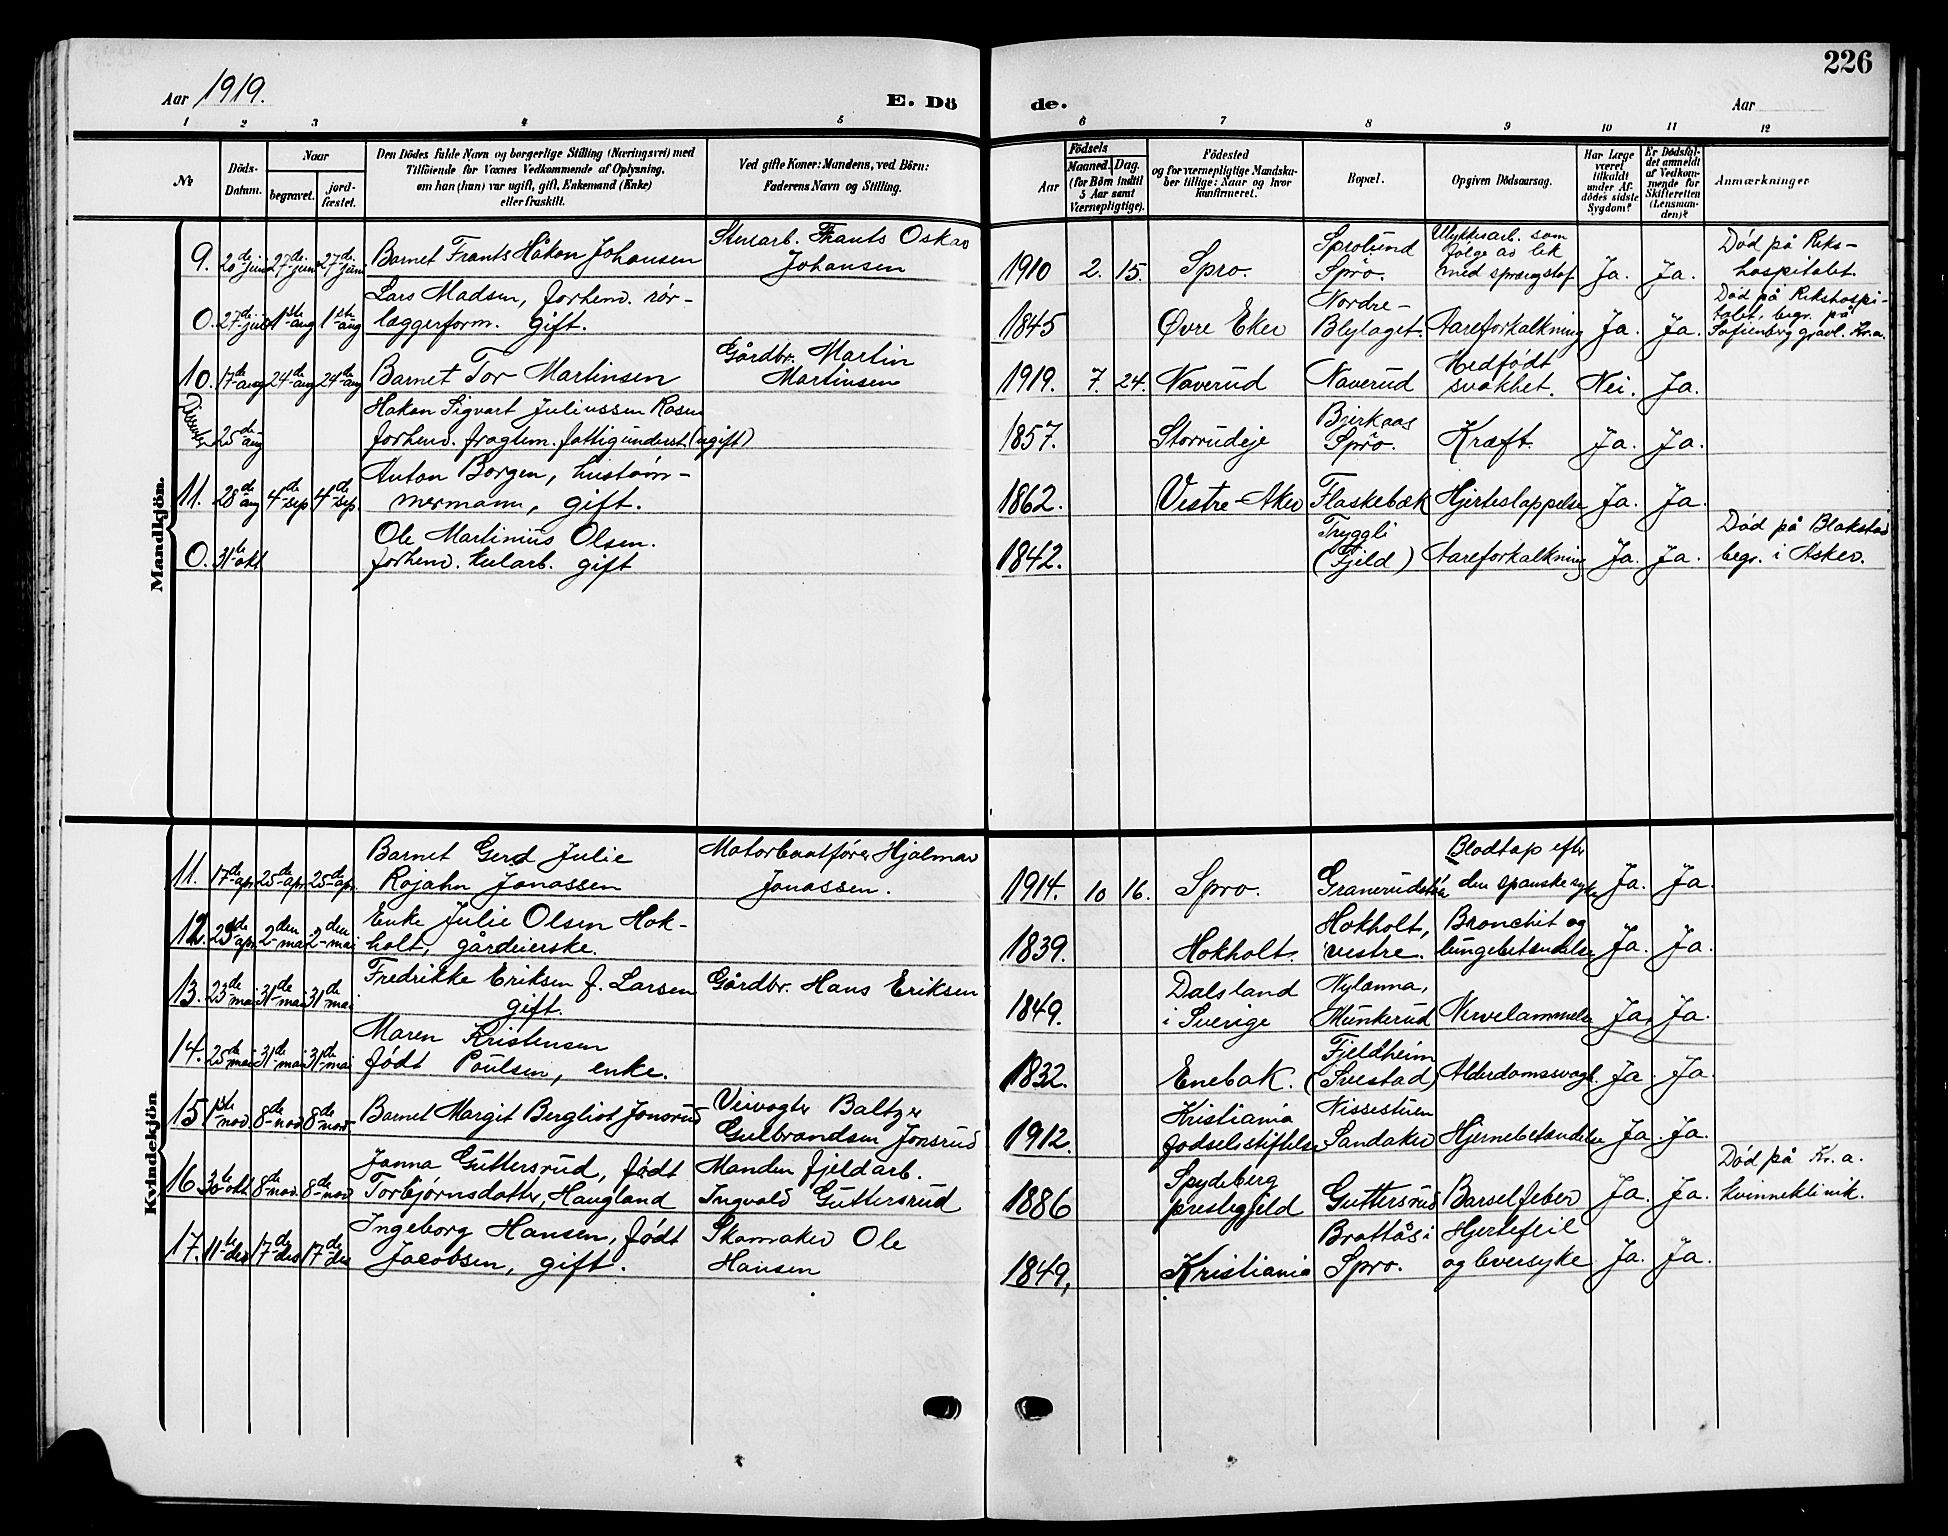 226
Aar 1919.
E. Dö
de.
Aar
1 2 3 4 5 6 7 8 9 10 11 12
№
Döds-
Datum.
Naar
begravet.
jord-
fæstet.
Den Dödes fulde Navn og borgerlige Stilling (Næringsvei) med
Tilföiende for Voxnes Vedkommende af Oplysning,
om han (hun) var ugift, gift, Enkemand (Enke)
eller fraskilt.
Ved gifte Koner: Mandens, ved Börn:
Faderens Navn og Stilling.
Födsels
Aar
Maaned. Dag.
(for Börn indtil
5 Aar samt
Værnepligtige).
Födested
og for værnepligtige Mandska-
ber tillige: Naar og hvor
konfirmeret.
Bopæl.
Opgiven Dödsaarsag.
Har Læge
været
tilkaldt
under Af-
dödes sidste
Sygdom?
Er Dödsfal-
det anmeldt
af Vedkom-
mende for
Skifteretten
(Lensman-
den)?
Anmærkninger
Mandkjön.
9. 20de jun 27de jun 27de jun Barnet Frants Håkon Johansen Stenarb. Frants Oskar
Johansen
1910 2. 15. Spro. Sprolund
Spro. Ulykkesarb. som
følge av lek
med sprængstof Ja. Ja. Død på Riks-
hospitalet.
0. 27de jul 1ste aug 1ste aug Lars Madsen, forhenv. rør-
læggerform. gift.
1845 Øvre Eker Nordre-
Blylaget. Aareforkalkning Ja. Ja. Død på Rikshospi-
talet, begr. på
Sofienberg gravl. Kr.a.
10. 17de aug 24de aug 24de aug Barnet Tor Martinsen Gårdbr. Martin
Martinsen
1919. 7. 24. Naverud Naverud Medfødt
svakhet. Nei. Ja.
Dissenter 25de aug Hakon Sigvart Juliussen Rosen
forhenv. fragtem. fattigunderst. (ugift)
1857. Storrudeje Bjerkaas
Spro. Kræft. Ja. Ja.
11. 28de aug 4de sep 4de sep. Anton Borgen, hustøm-
mermann, gift.
1862. Vestre-Aker Flaskebæk Hjerteslappelse Ja. Ja.
0. 31te okt Ole Martinius Olsen.
forhenv. gift
1842. Tryggli
(Fjeld) Aareforkalkning Ja. Ja. Død på Blakstad
begr. i Asker.
Kvindekjön
11. 17de apr 25de apr. 25de apr. Barnet Gerd Julie
Rojahn Jonassen Motorbaatfører Hjalmar
Jonassen.
1914. 10 16. Spro. Blodtap efter
den spanske syke Ja. Ja.
12. 25de apr. 2den mai 2den mai Enke Julie Olsen Hok-
holt, gårdeierske.
1839. Hokholt. Hokholt,
vestre. Bronchit og
lungebetændelse Ja. Ja.
13. 23de mai 31de mai 31de mai Fredrikke Eriksen f. Larsen
gift. Gårdbr. Hans Eriksen
1849. Dalsland
i Sverige Nylænna,
Munkerud Nervelammelse Ja. Ja.
14. 25de mai 31de mai 31de mai Maren Kristensen
født Poulsen, enke.
1832. Enebak. Fjeldheim
(Svestad) Alderdomssvagh. Ja. Ja.
15 1ste nov 8de nov 8de nov Barnet Margit Bergliot Jonsrud Veivogter Baltzer
Gulbrandsen Jonsrud
1912. Kristiania
fødselsstiftelse Nissestuen
Sandaker Hjernebetændelse Ja. Ja.
16. 30te okt 8de nov. 8de nov Janna Guttersrud, født
Torbjørnsdatter, Haugland Manden fjeldarb.
Ingvald Guttersrud
1886 Spydeberg
prestegjeld Guttersrud Barselfeber Ja. Ja. Død på Kr.a.
kvinneklinik.
17. 11te des 17de des 17de des Ingeborg Hansen, født
Jacobsen, gift. Skomaker Ole
Hansen
1849, Kristiania Brattås i
Spro. Hjertefeil
og leversyke Ja. Ja.